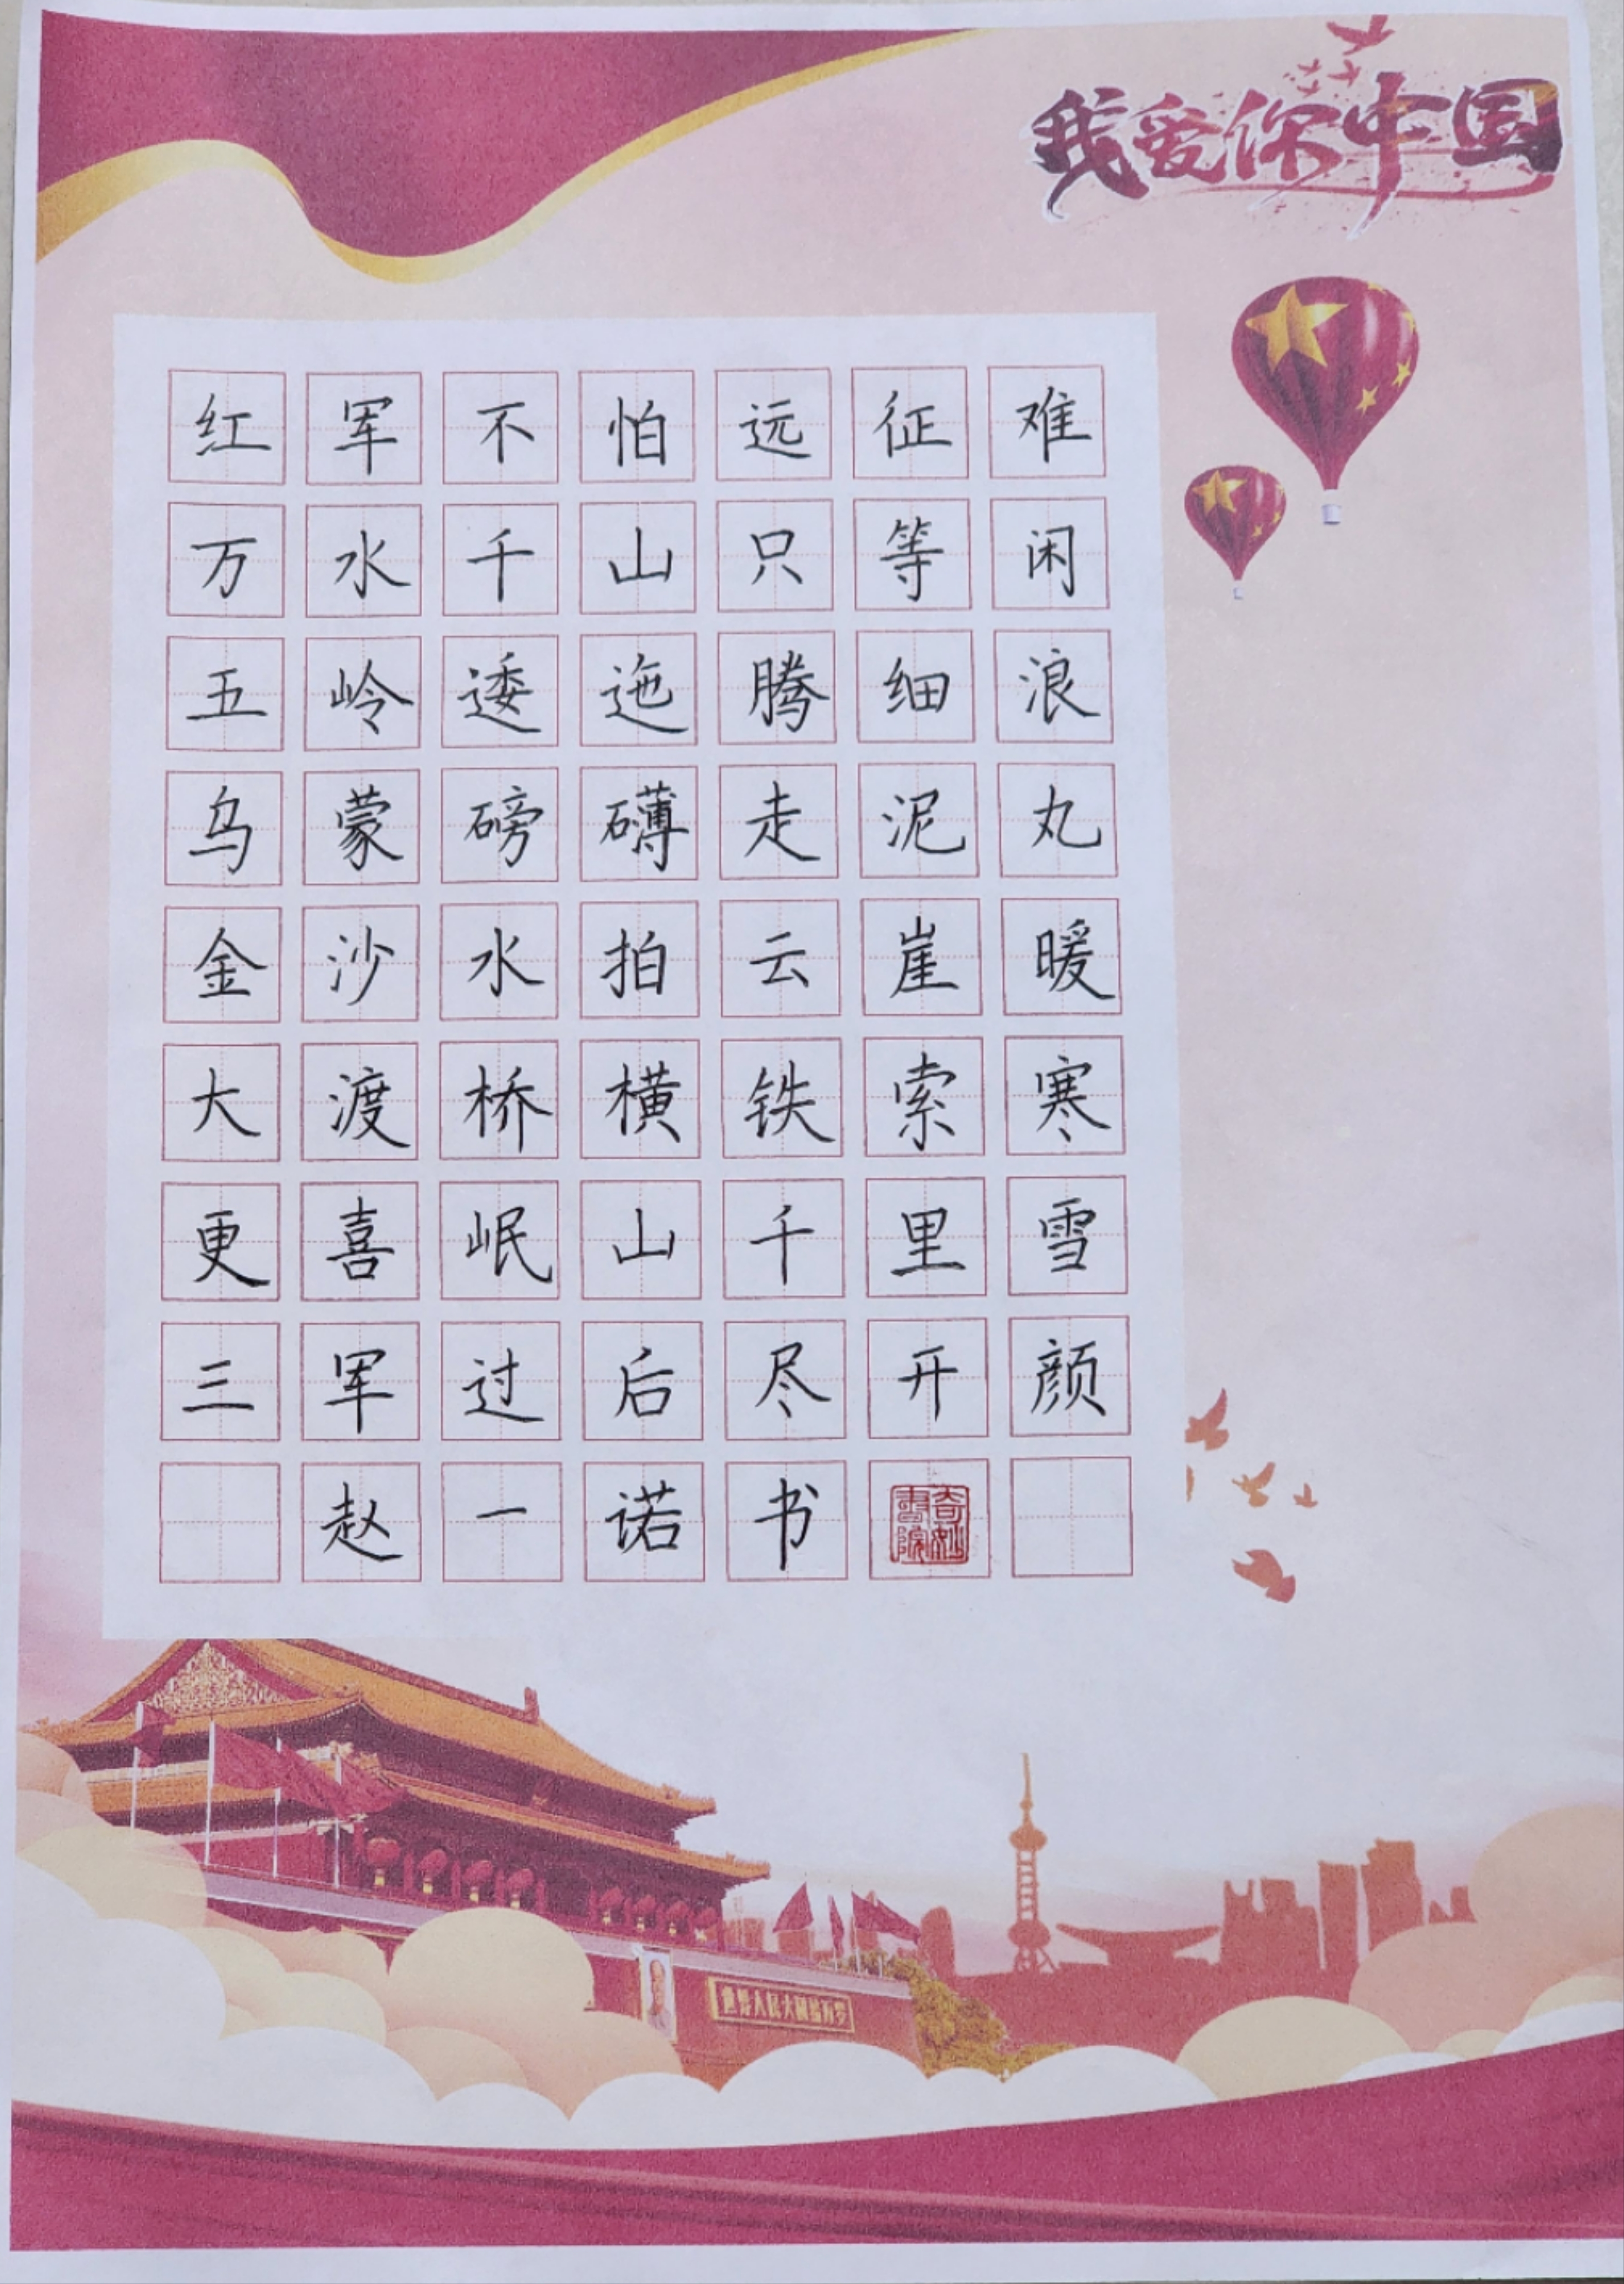 我爱你中国
红军不怕远征难
万水千山只等闲
五岭逶迤腾细浪
乌蒙磅礴走泥丸
金沙水拍云崖暖
大渡桥横铁索寒
更喜岷山千里雪
三军过后尽开颜
赵一诺书
奇妙書院
世界人民大团结万岁